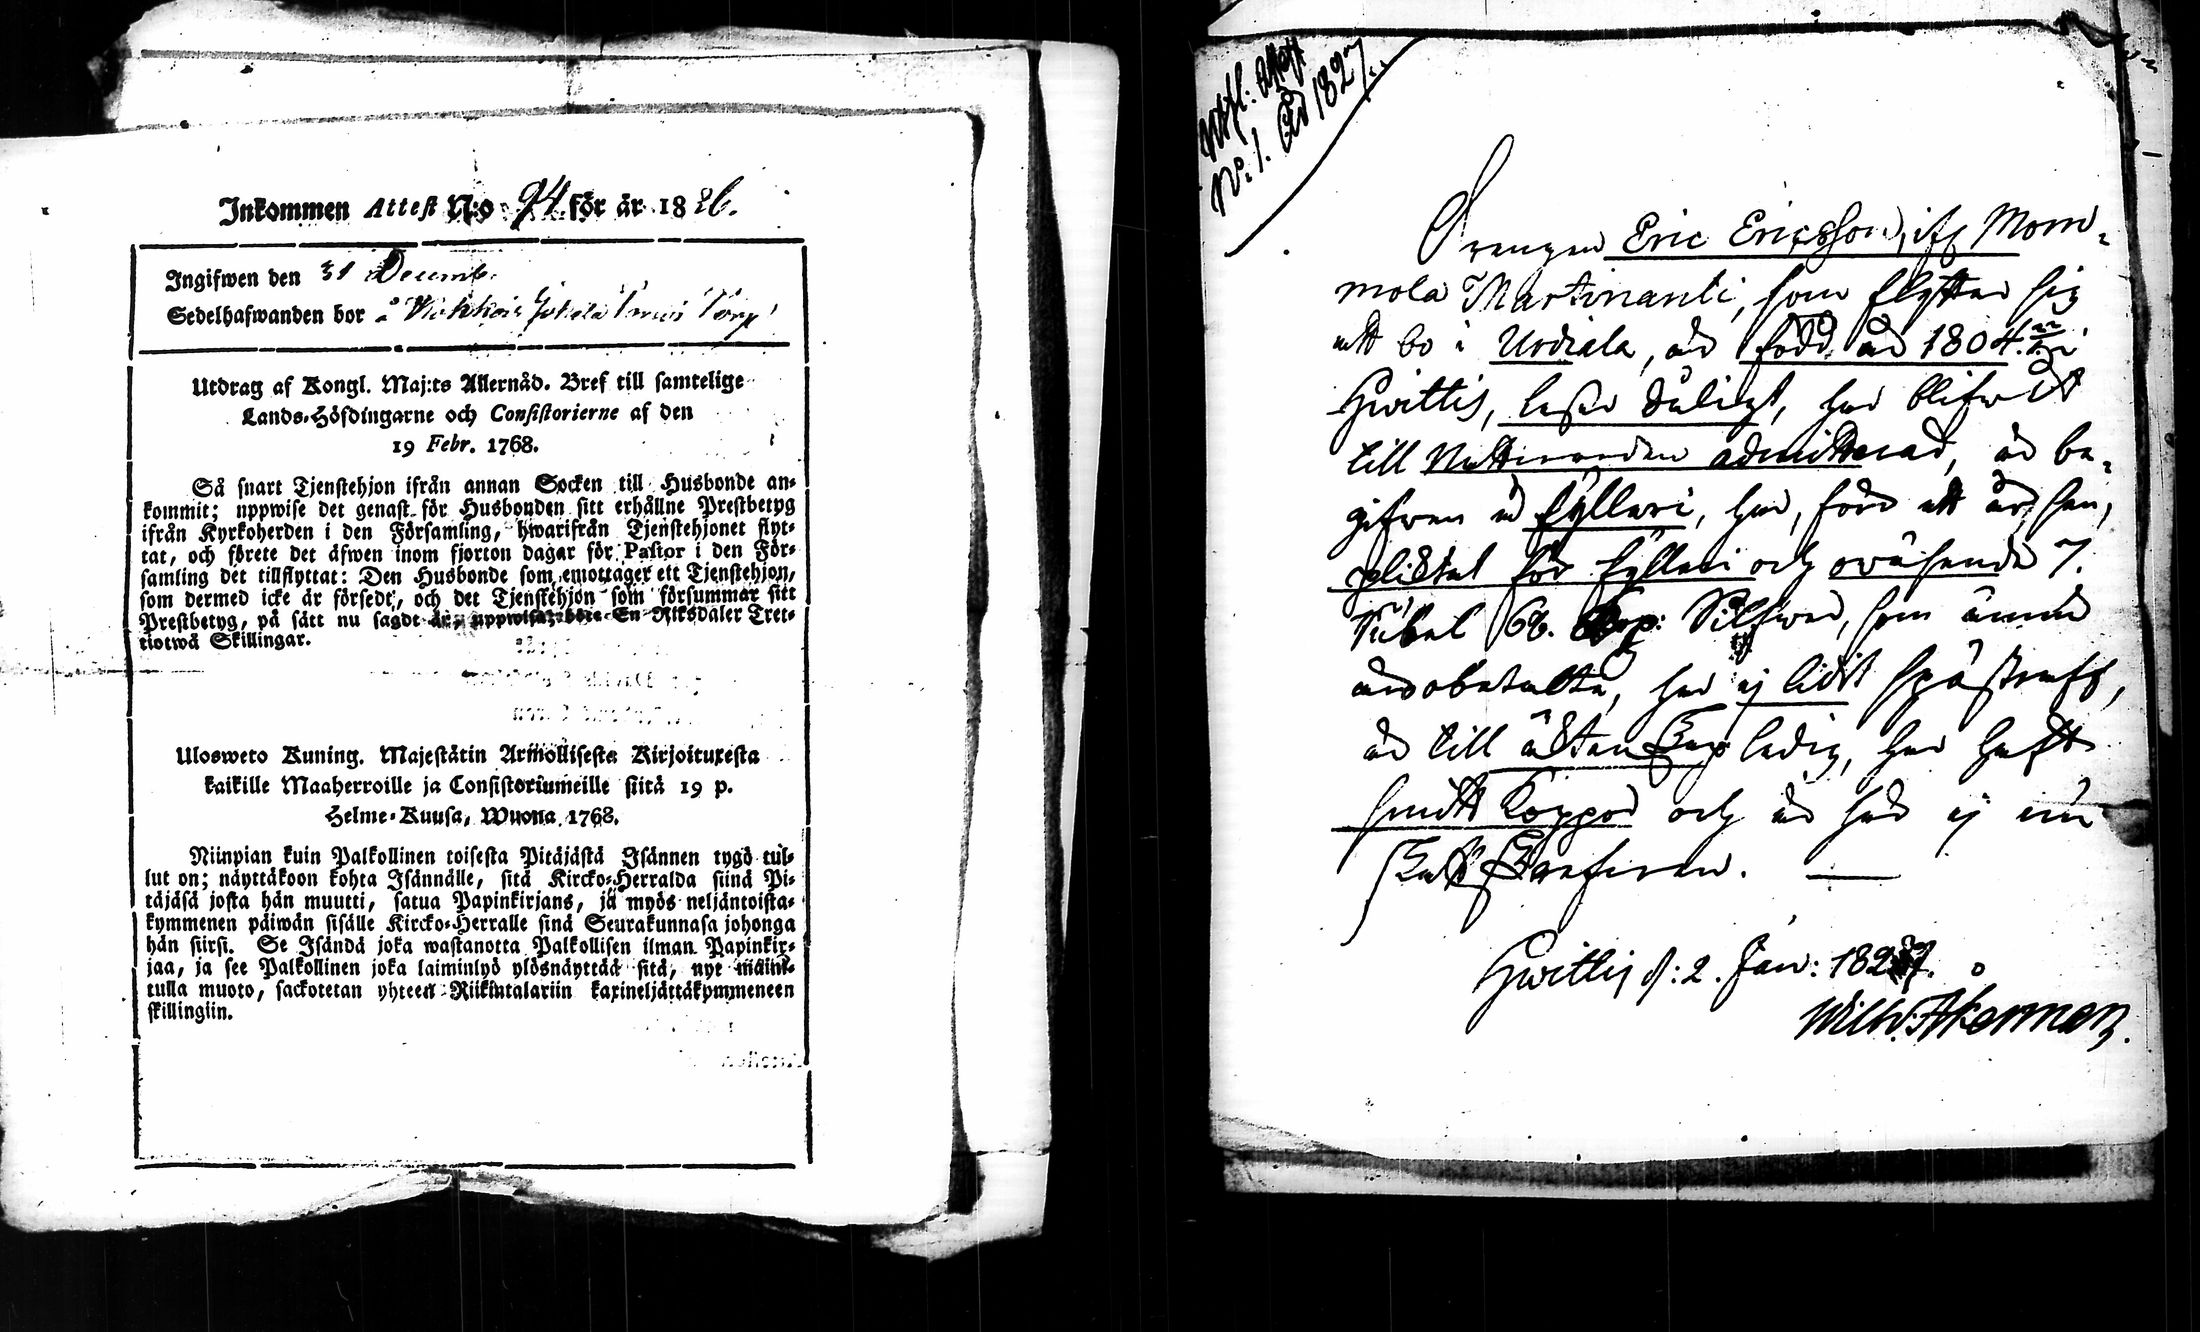 Inkommen Attest N:o 94 för år 1826.
Ingifwen den 31 Decemb.
Sedelhafwanden bor å
Utdrag af Kongl. Maj:ts Allernåd. Bref till samtelige
Lands-Höfdingarne och Consistorierne af den
19 Febr. 1768.
Så snart Tjenstehjon ifrån annan Socken till Husbonde an-
kommit; uppwise det genast för Husbonden sitt erhållne Prestbetyg
ifrån Kyrkoherden i den Församling, hwarifrån Tjenstehjonet flyt-
tat, och förete det äfwen inom fjorton dagar för Pastor i den För-
samling det tillflyttat: Den Husbonde som emottager ett Tjenstehjon,
som dermed icke är försedt, och det Tjenstehjon som försummar sitt
Prestbetyg, på sätt nu sagdt är, uppwisa; böte En Riksdaler Tret-
tiotwå Skillingar.
Ulosweto Kuning. Majestätin Armollisesta Kirjoituxesta
kaikille Maaherroille ja Consistoriumeille siitä 19 p.
Helme-Kuusa, Wuona 1768.
Niinpian kuin Palkollinen toisesta Pitäjästä Isännen tygö tul-
lut on; näyttäkoon kohta Isännälle, sitä Kircko-Herralda siinä Pi-
täjäsä josta hän muutti, saatua Papinkirjans, jä myös neljäntoista-
kymmenen päiwän sisälle Kircko-Herralle sinä Seurakunnasa johonga
hän siirsi. Se Isändä joka wastanotta Palkollisen ilman Papinkir-
jaa, ja see Palkollinen joka laiminlyö ylösnäyttää sitä, nyt mainit-
tulla muoto, sackotetan yhteen Riikintalariin kaxineljättäkymmeneen
skillingiin.
No. 1. 1827.
Drengen Eric Ericsson, ifr. Mom-
mola Martinanti, som flyttar sig
att bo i Urdiala, är född år 1804 i
Hwittis, läser dåligt, har blifwit
till Nattwarden admitterad, är be-
gifwen å fylleri, har, förr ett år sen,
pliktat för fylleri och owäsende 7.
Rubel 66. Kop: Silfwer, som ännu
äro obetalta, har ej lidit spöstraff,
är till äktenskap ledig, har haft
smitt koppor och är här ej nu
skattskrefwen.
Hwittis d: 2. Jan: 1827.
Wilh: Åkerman.